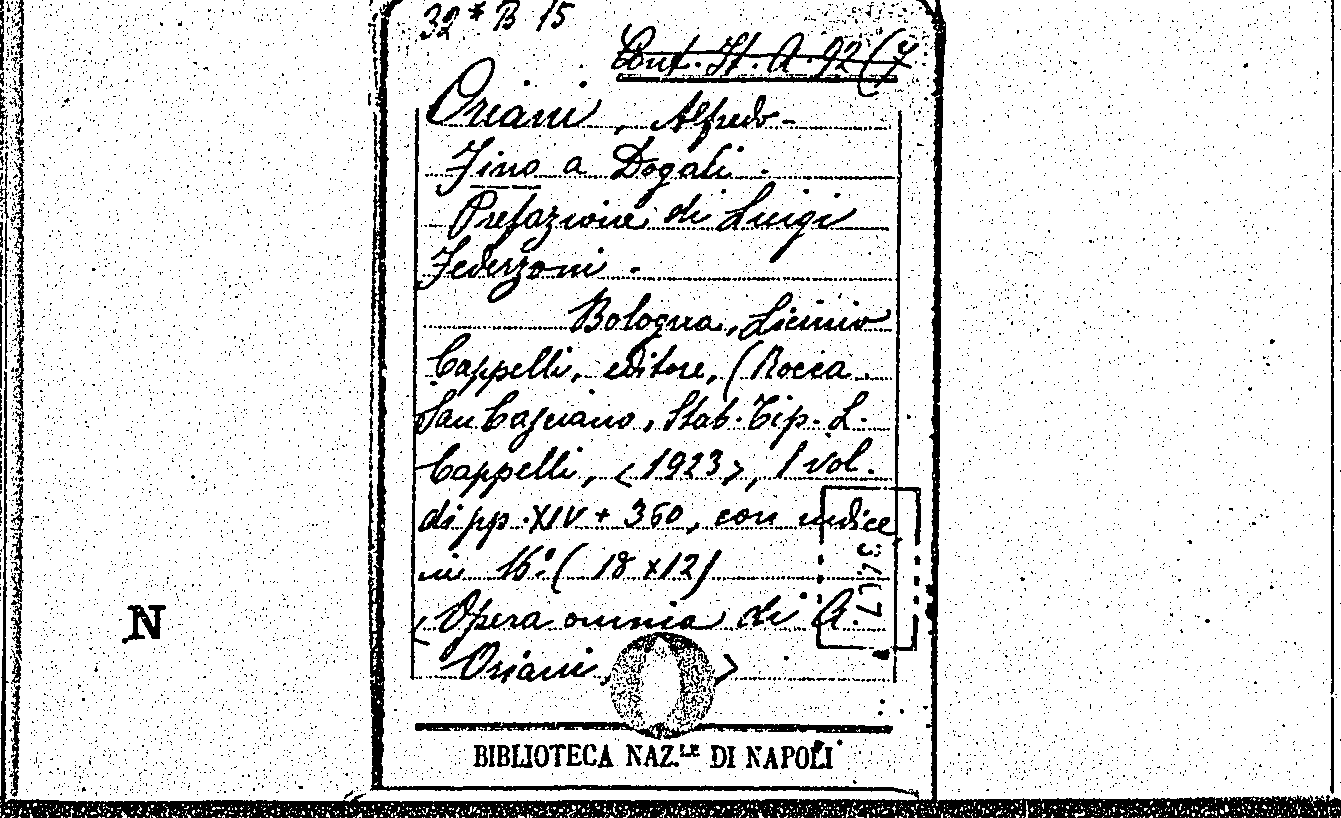 32* B 15
Cont. It. A. 92 (7
Oriani, Alfredo -
Fino a Dogali.
Prefazione di Luigi
Federzoni.
Bologna, Licinio
Cappelli, editore, (Rocca
San Casciano, Stab. Tip. L.
Cappelli, <1923>, 1 vol.
di pp. XIV + 360, con indice
in 16º (18 x 12)
N
<Opera omnia di A.
Oriani, >
BIBLIOTECA NAZ.LE DI NAPOLI